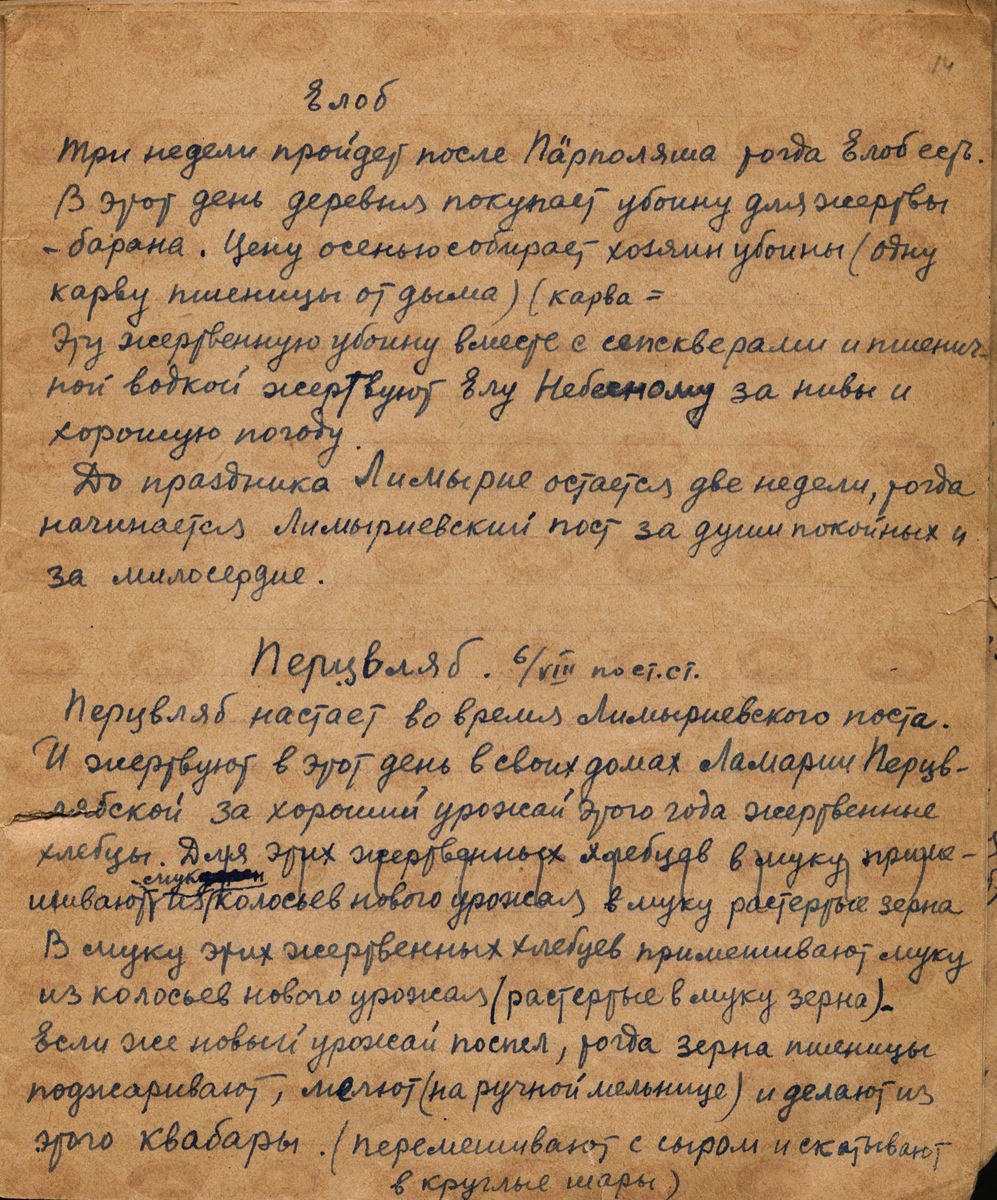 14
Елоб
Три недели пройдет после Пäрполяша тогда Елоб есть.
В этот день деревня покупает убоину для жертвы
- барана. Цену осенью собирает хозяин убоины (одну
карву пшеницы от дыма) (карва =
Эту жертвенную убоину вместе с сепскверами и пшенич-
ной водкой жертвуют Елу Небесному за нивы и
хорошую погоду.
До праздника Лимырие остается две недели, тогда
начинается Лимыриевский пост за души покойных и
за милосердие.
Перцвляб. 6/VIII пост. ст.
Перцвляб настает во время Лимыриевского поста.
И жертвуют в этот день в своих домах Ламарии Перцв-
лябской за хороший урожай этого года жертвенные
хлебцы. Для этих жертвенных хлебцев в муку приме-
шивают муку из колосьев нового урожая в муку растертые зерна
В муку этих жертвенных хлебцев примешивают муку
из колосьев нового урожая (растертые в муку зерна).
Если же новый урожай поспел, тогда зерна пшеницы
поджаривают, мелют (на ручной мельнице) и делают из
этого квабары. (перемешивают с сыром и скатывают
в круглые шары)